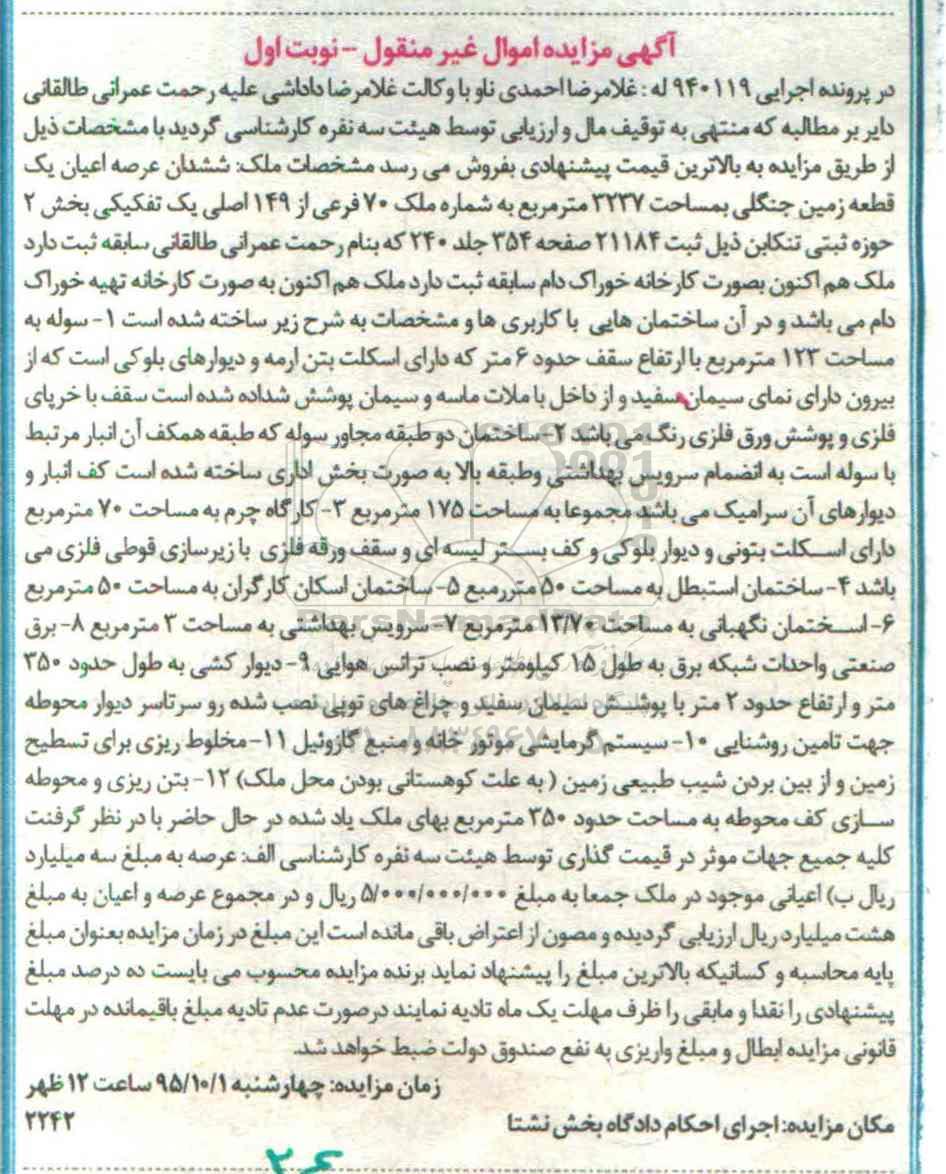 آگهی مزایده اموال غیر منقول - نوبت اول
در پرونده اجرایی ۹۴۰۱۱۹ له : غلامرضا احمدی ناو با وکالت غلامرضا داداشی علیه رحمت عمرانی طالقانی
دایر بر مطالبه که منتهی به توقیف مال و ارزیابی توسط هیئت سه نفره کارشناسی گردید با مشخصات ذیل
از طریق مزایده به بالاترین قیمت پیشنهادی بفروش می رسد مشخصات ملک: ششدان عرصه اعیان یک
قطعه زمین جنگلی بمساحت ۳۲۳۷ مترمربع به شماره ملک ۷۰ فرعی از ۱۴۹ اصلی یک تفکیکی بخش ۲
حوزه ثبتی تنکابن ذیل ثبت ۲۱۱۸۴ صفحه ۳۵۴ جلد ۲۴۰ که بنام رحمت عمرانی طالقانی سابقه ثبت دارد
ملک هم اکنون بصورت کارخانه خوراک دام سابقه ثبت دارد ملک هم اکنون به صورت کارخانه تهیه خوراک
دام می باشد و در آن ساختمان هایی با کاربری ها و مشخصات به شرح زیر ساخته شده است ۱- سوله به
مساحت ۱۲۳ مترمربع با ارتفاع سقف حدود ۶ متر که دارای اسکلت بتن ارمه و دیوارهای بلوکی است که از
بیرون دارای نمای سیمان سفید و از داخل با ملات ماسه و سیمان پوشش شداده شده است سقف با خرپای
فلزی و پوشش ورق فلزی رنگ می باشد ۲- ساختمان دو طبقه مجاور سوله که طبقه همکف آن انبار مرتبط
با سوله است به انضمام سرویس بهداشتی وطبقه بالا به صورت بخش اداری ساخته شده است کف انبار و
دیوارهای آن سرامیک می باشد مجموعا به مساحت ۱۷۵ مترمربع ۳- کارگاه چرم به مساحت ۷۰ مترمربع
دارای اسکلت بتونی و دیوار بلوکی و کف بستر لیسه ای و سقف ورقه فلزی با زیرسازی قوطی فلزی می
باشد ۴- ساختمان استبطل به مساحت ۵۰ متررمبع ۵- ساختمان اسکان کارگران به مساحت ۵۰ مترمربع
۶- اسختمان نگهبانی به مساحت ۱۳/۷۰ مترمربع ۷- سرویس بهداشتی به مساحت ۳ مترمربع ۸- برق
صنعتی واحدات شبکه برق به طول ۱۵ کیلومتر و نصب ترانس هوایی ۹- دیوار کشی به طول حدود ۳۵۰
متر و ارتفاع حدود ۲ متر با پوشش سیمان سفید و چراغ های توپی نصب شده رو سرتاسر دیوار محوطه
جهت تامین روشنایی ۱۰- سیستم گرمایشی موتور خانه و منبع گازوئیل ۱۱- مخلوط ریزی برای تسطیح
زمین و از بین بردن شیب طبیعی زمین ( به علت کوهستانی بودن محل ملک) ۱۲- بتن ریزی و محوطه
سازی کف محوطه به مساحت حدود ۳۵۰ مترمربع بهای ملک یاد شده در حال حاضر با در نظر گرفتن
کلیه جمیع جهات موثر در قیمت گذاری توسط هیئت سه نفره کارشناسی الف: عرصه به مبلغ سه میلیارد
ریال ب) اعیانی موجود در ملک جمعا به مبلغ ۵/۰۰۰/۰۰۰/۰۰۰ ریال و در مجموع عرصه و اعیان به مبلغ
هشت میلیارد ریال ارزیابی گردیده و مصون از اعتراض باقی مانده است این مبلغ در زمان مزایده بعنوان مبلغ
پایه محاسبه و کسانیکه بالاترین مبلغ را پیشنهاد نماید برنده مزایده محسوب می بایست ده درصد مبلغ
پیشنهادی را نقدا و مابقی را ظرف مهلت یک ماه تادیه نمایند درصورت عدم تادیه مبلغ باقیمانده در مهلت
قانونی مزایده ابطال و مبلغ واریزی به نفع صندوق دولت ضبط خواهد شد.
زمان مزایده: چهارشنبه ۹۵/۱۰/۱ ساعت ۱۲ ظهر
مکان مزایده: اجرای احکام دادگاه بخش نشتا ۲۲۴۲
۲۶